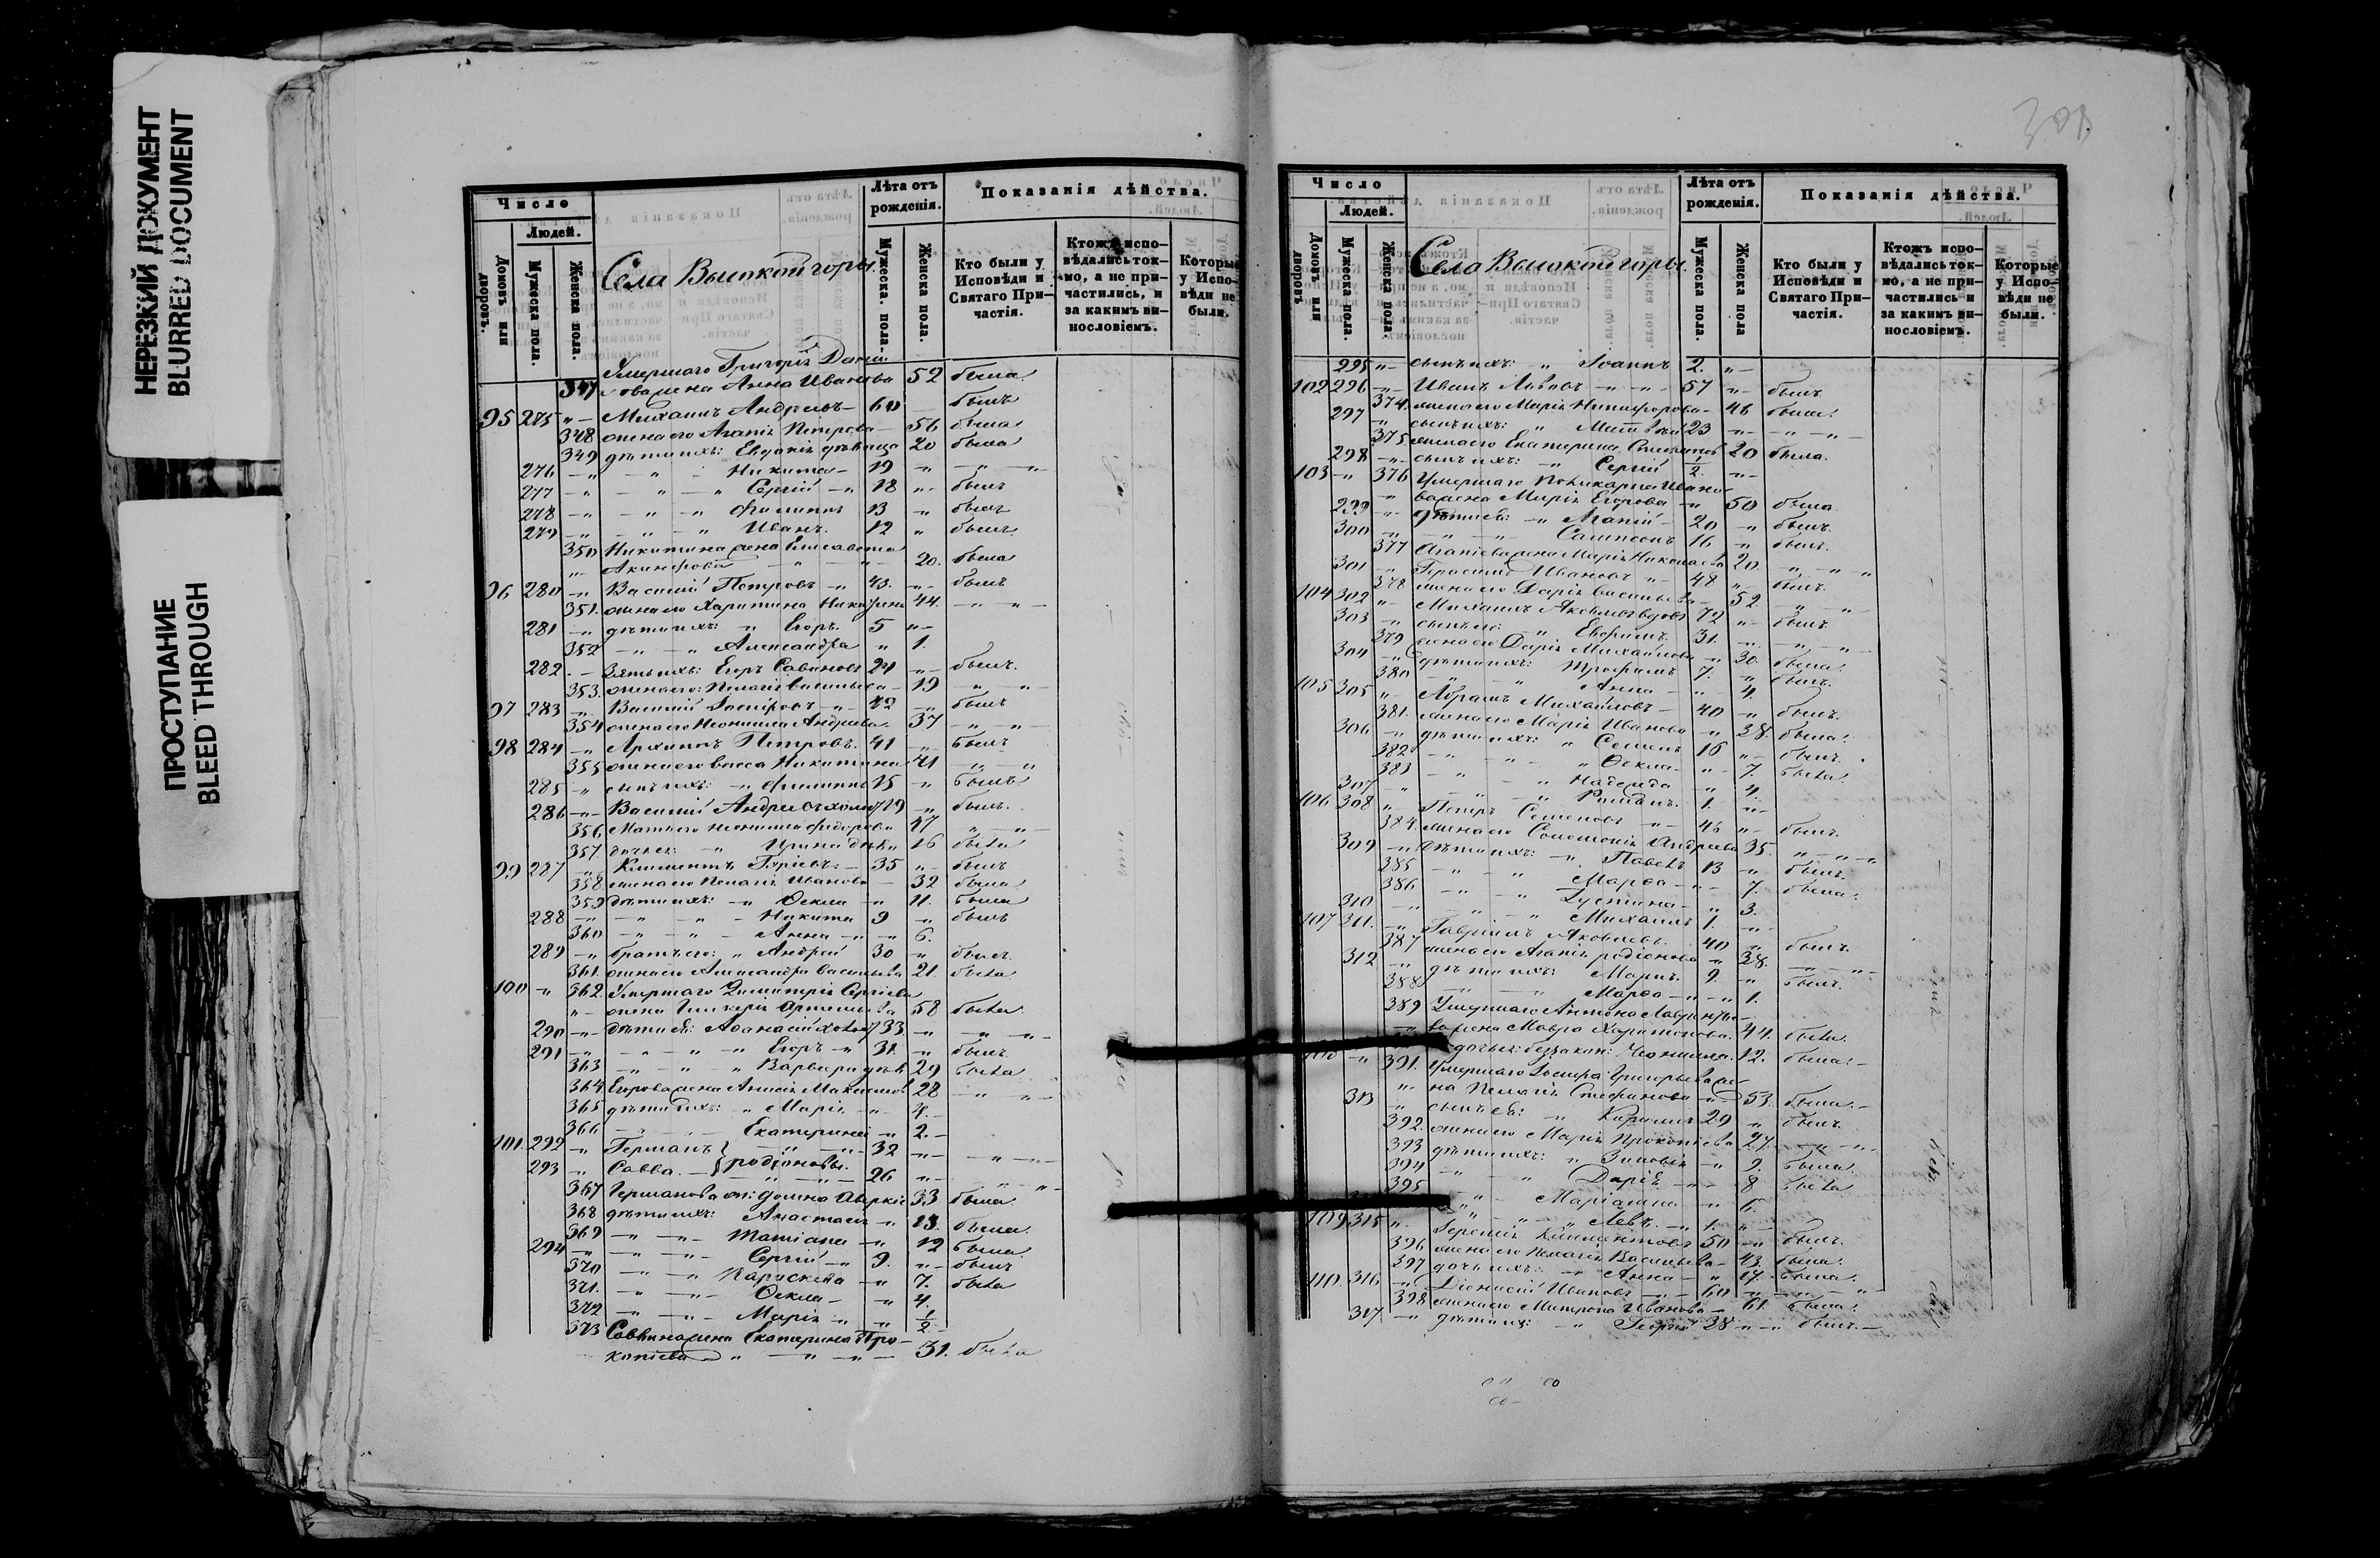 НЕРЕЗКИЙ ДОКУМЕНТ
BLURRED DOCUMENT
ПРОСТУПАНИЕ
BLEED THROUGH
Число
Людей.
Домовъ или дворовъ.
Мужеска пола.
Женска пола.
Села Высокой горы.
Лѣта отъ рожденія.
Мужеска пола.
Женска пола.
Показанія дѣйства.
Кто были у Исповѣди и Святаго Причастія.
Ктожъ исповѣдались токмо, а не причастились, и за какимъ винословіемъ.
Которые у Исповѣди не были.
Умершаго Григорія
347 жена Анна Иванова 52 была
95 275 "- Михаилъ Андреевъ- 60 былъ
348 жена его Агапія Петрова- 56 была
349 дѣти ихъ: Евдокія дѣвица 20 была
276 -" - " - Никита- 19 " -"-"-
277 -" - " -" Сергій -" 18 "- былъ
278 -" - " -" Филиппъ 13 -" былъ
279 -" - " -" Иванъ. 12 " былъ
350 Никитина жена Елисавета
"- - " - " - 20. была
96 280 -" Василій Петровъ -" 43. "- былъ
351. жена его Харитина 44. -"-"-
281 -" дѣти ихъ: -" Егоръ. 5 "-
352 -" -" Александра " 1.
282. - Зять ихъ: Егоръ Савиновъ 24 "- былъ.
353. жена его: Пелагія Васильева- 19 -"-"-
97 283 -" Василій -" 42 -" былъ
354 жена его Неонилла Андреева. 37 -"-"-
98 284 -" Архипъ Петровъ. 41 -" былъ
355 жена его Васса Никитина 41 -"-"
285 -" сынъ ихъ: -" Филиппъ 15 -" былъ
286 -" Василій Андреевъ 19 -" былъ.
356 Мать его Неонилла Федорова 47 -"-"-
357 дочь ея: -" Ирина 16 была
99 287 -" Климентъ Гуріевъ- 35 "- былъ
358. жена его Пелагія Иванова 32 была
359 дѣти ихъ: -" Ѳекла -" 11. была
288 -" -" -" - Никита 9 -" былъ
360 -" -" - Анна -" -" 6.
289 -" братъ его: " Андрей 30 -" былъ
361. жена его Александра Васильева 21. была
100 -" 362. Умершаго Димитрія Сергіева
" - жена Гликерія 58 была
290 -" дѣти ея: Аѳанасій 33 -" -"-"-
291 -" - " -" -" Егоръ -" 31. -" былъ
363 -" -" -" Варвара 29 была
364 Егорова жена Анисія 28 -"-"-
365 дѣти ихъ: -" Марія -" 4.-
366 -" Екатерина -" 2.-
101. 292 -" Германъ 32 "- -"-"-
293 -" Савва. - Родіоновы. 26 "- "-"-
367 Германова ж: Домна 33 была
368 дѣти ихъ: Анастасія -" 13. была.
369 -" -" Татіана -" 12 была
294 -" -" -" Сергій -" 9. "- былъ
370 -" -" Параскева -" 7. была
371. -" -" Ѳекла- -" 4.
372 -" -" Марія -" " 1/2-
373 Саввина жена Екатерина Про-
копіева -" -" -" - 31. была
Число
Людей.
Домовъ или дворовъ.
Мужеска пола.
Женска пола.
Села Высокой горы.
Лѣта отъ рожденія.
Мужеска пола.
Женска пола
Показанія дѣйства.
Кто были у Исповѣди и Святаго Причастія.
Ктожъ исповѣдались токмо, а не причастились и за какимъ винословіемъ.
Которые у Исповѣди не были.
295 "- сынъ ихъ: " Іоаннъ 2. "-
102 296 -" Иванъ Львовъ -" -" 57 "- былъ
374. жена его Марія Никифорова- 46 была.
297 -" сынъ ихъ: " 23 "- -"-"-
375. жена его Екатерина 20 была.
298 -" сынъ ихъ: -" Сергій 1/2. "-
103 -" 376 Умершаго Поликарпа Ивано-
" ва жена Марія Егорова -" 50 была.
299 -" дѣти ея: -" Агапій- 20 -" былъ.
300 -" -" -" Сампсонъ 16 -" былъ.
377 Агапіева жена Марія Николаева 20. -"-"-"
301 -" Герасимъ Ивановъ -" 48 "- былъ.
378 жена его Дарія Васильева- 52. -"-"-
104 302 "- Михаилъ Яковлевъ вдовъ 72 "- былъ
303 -" сынъ его: " Евфимъ. 31. -" -"-"-
379 жена его Дарія Михайлова -" 30 была.
304 -" дѣти ихъ: Трофимъ 7. -" былъ.
380 -" -" Анна- -" 4.
105 305 "- Абрамъ Михайловъ- 40 -" былъ.
381. жена его Марія Иванова -" 38. была.
306 -" дѣти ихъ: " Семенъ 16 "- былъ.
382 -" -" -" Ѳекла- -" 7. была.
383 -" -" -" Надежда -" 4.
307 -" -" -" Романъ. 1. -"
106 308 "- Петръ Семеновъ -" 45 "- былъ.
384. жена его Соломонія Андреева 35. "-"-"
309 -" дѣти ихъ: -" Павелъ 13 -" былъ.
385 -" -" Марѳа- -" 7. была.
386 -" -" Іустина- -" 3.
310 -" -" -" Михаилъ 1. -"
107 311. -" Гавріилъ Яковлевъ. 40 -" былъ.
387 жена его Агапія Родіонова -" 38. -"-"-
312 -" дѣти ихъ: Маркъ. 9. -" былъ.
388 -" -" Марѳа- -" 1.
389 Умершаго Антона Лаврентье-
-" ва жена Мавра Харитонова. 44. была.
дочь ея: беззакон: Неонилла. 12. была.-
-" 391. Умершаго Григорьева же-
"- на Пелагія Стефанова -" 53. была.-
313 -" сынъ ея: -" Кириллъ 29 -" былъ.
392. жена его Марія Прокопіева 27. -"-"-
393 дѣти ихъ: " Зиновія -" 9. была.
394 -" -" Дарія -" 8 была
395 -" -" Маріамна -" 6.
-" -" -" Левъ. -" 1. "-
109 315 "- Еремій Климентовъ 50 -" былъ.
396 жена его Пелагія Васильева- 43. была.
397 дочь ихъ: -" Анна- -" 17. была.
110. 316 -" Діонисій Ивановъ -" 60 -"-"-"
398 жена его Матрона Иванова- 61. была.
317 -" дѣти их: -" Георгій 38 -" -" былъ.-